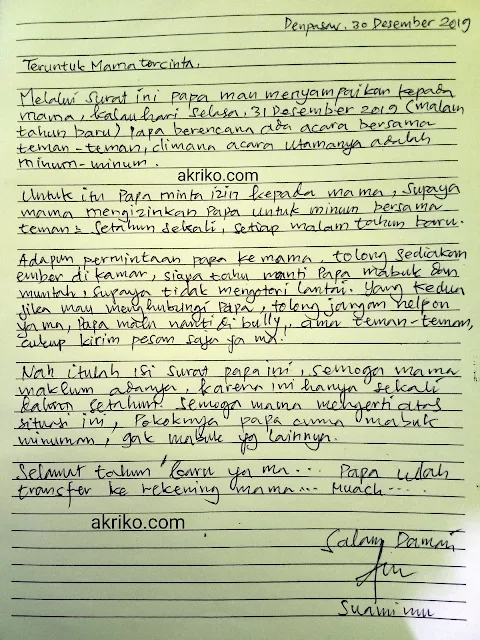 Denpasar, 30 Desember 2019
Teruntuk Mama tercinta,
Melalui surat ini Papa mau menyampaikan kepada
mama, kalau hari Selasa, 31 Desember 2019 (malam
tahun baru) papa berencana ada acara bersama
teman-teman, dimana acara utamanya adalah
minum-minum.
akriko.com
Untuk itu Papa minta izin kepada mama, supaya
mama mengizinkan Papa untuk minum bersama
teman2 setahun sekali, setiap malam tahun baru.
Adapun permintaan papa ke mama, tolong sediakan
ember di kamar, siapa tahu nanti Papa mabuk dan
muntah, supaya tidak mengotori lantai. Yang kedua
jika mau menghubungi Papa, tolong jangan nelpon
ya ma, Papa malu nanti di bully, ama teman-teman,
cukup kirim pesan saja ya ma.
Nah itulah isi surat papa ini, semoga mama
maklum adanya, karena ini hanya sekali
dalam setahun. Semoga mama mengerti atas
situasi ini, Pokoknya papa cuma mabuk
minuman, gak mabuk yg lainnya.
Selamat tahun baru ya ma... Papa udah
transfer ke rekening mama... Muach....
akriko.com
Salam Damai
Suamimu